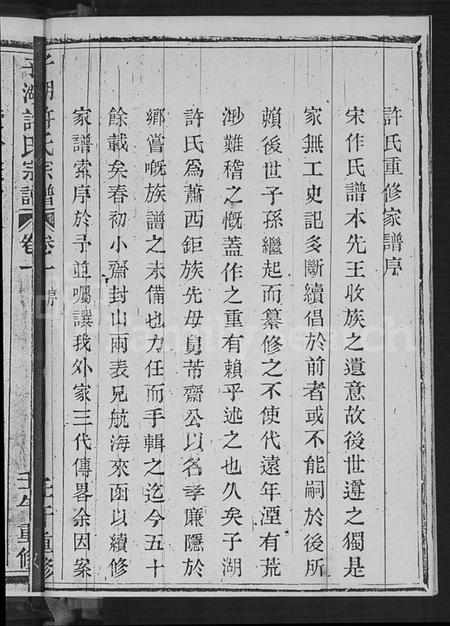 許氏重修家譜序
宋作氏譜本先王收族之遺意故後世遵之獨是
家無工史記多斷續倡於前者或不能嗣於後所
賴後世子孫繼起而纂修之不使代遠年湮有荒
渺難稽之慨蓋作之重有賴乎述之也久矣子湖
許氏爲蕭西鉅族先母舅芾齋公以名孝廉隱於
鄉嘗嘅族譜之未備也力任而手輯之迄今五十
餘載矣春初小齋封山兩表兄航海來函以續修
家譜索序於予並囑讓我外家三代傳畧余因案
子湖許氏宗譜
卷一
序
壬午重修